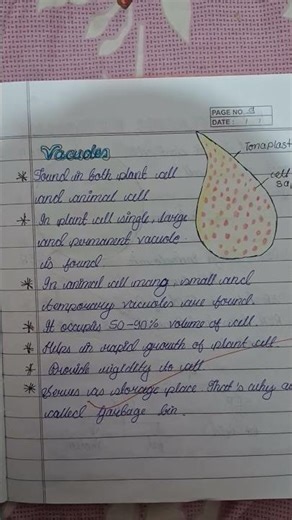 PAGE NO.
DATE: / /
Vacuoles
Tonoplast
cell
sa
* Found in both plant cell
and animal cell
* In plant cell single, large
and permanent vacuole
is found
* In animal cell many, small and
temporary vacuoles are found.
* It occupies 50-90% volume of cell.
* Helps in rapid growth of plant cell
* Provide rigidity to cell
* Serves as storage place that's why
called Garbage bin.